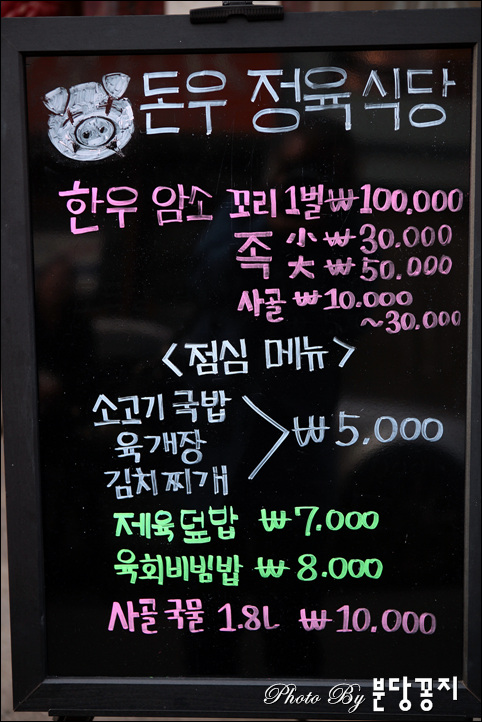 돈우 정육식당
한우 암소 꼬리 1벌 ₩100.000
족 小 ₩30.000
大 ₩50.000
사골 ₩10.000
~30.000
<점심 메뉴>
소고기국밥
육개장
김치찌개
₩5.000
제육덮밥 ₩7.000
육회비빔밥 ₩8.000
사골국물 1.8L ₩10.000
Photo By 분당꽁지